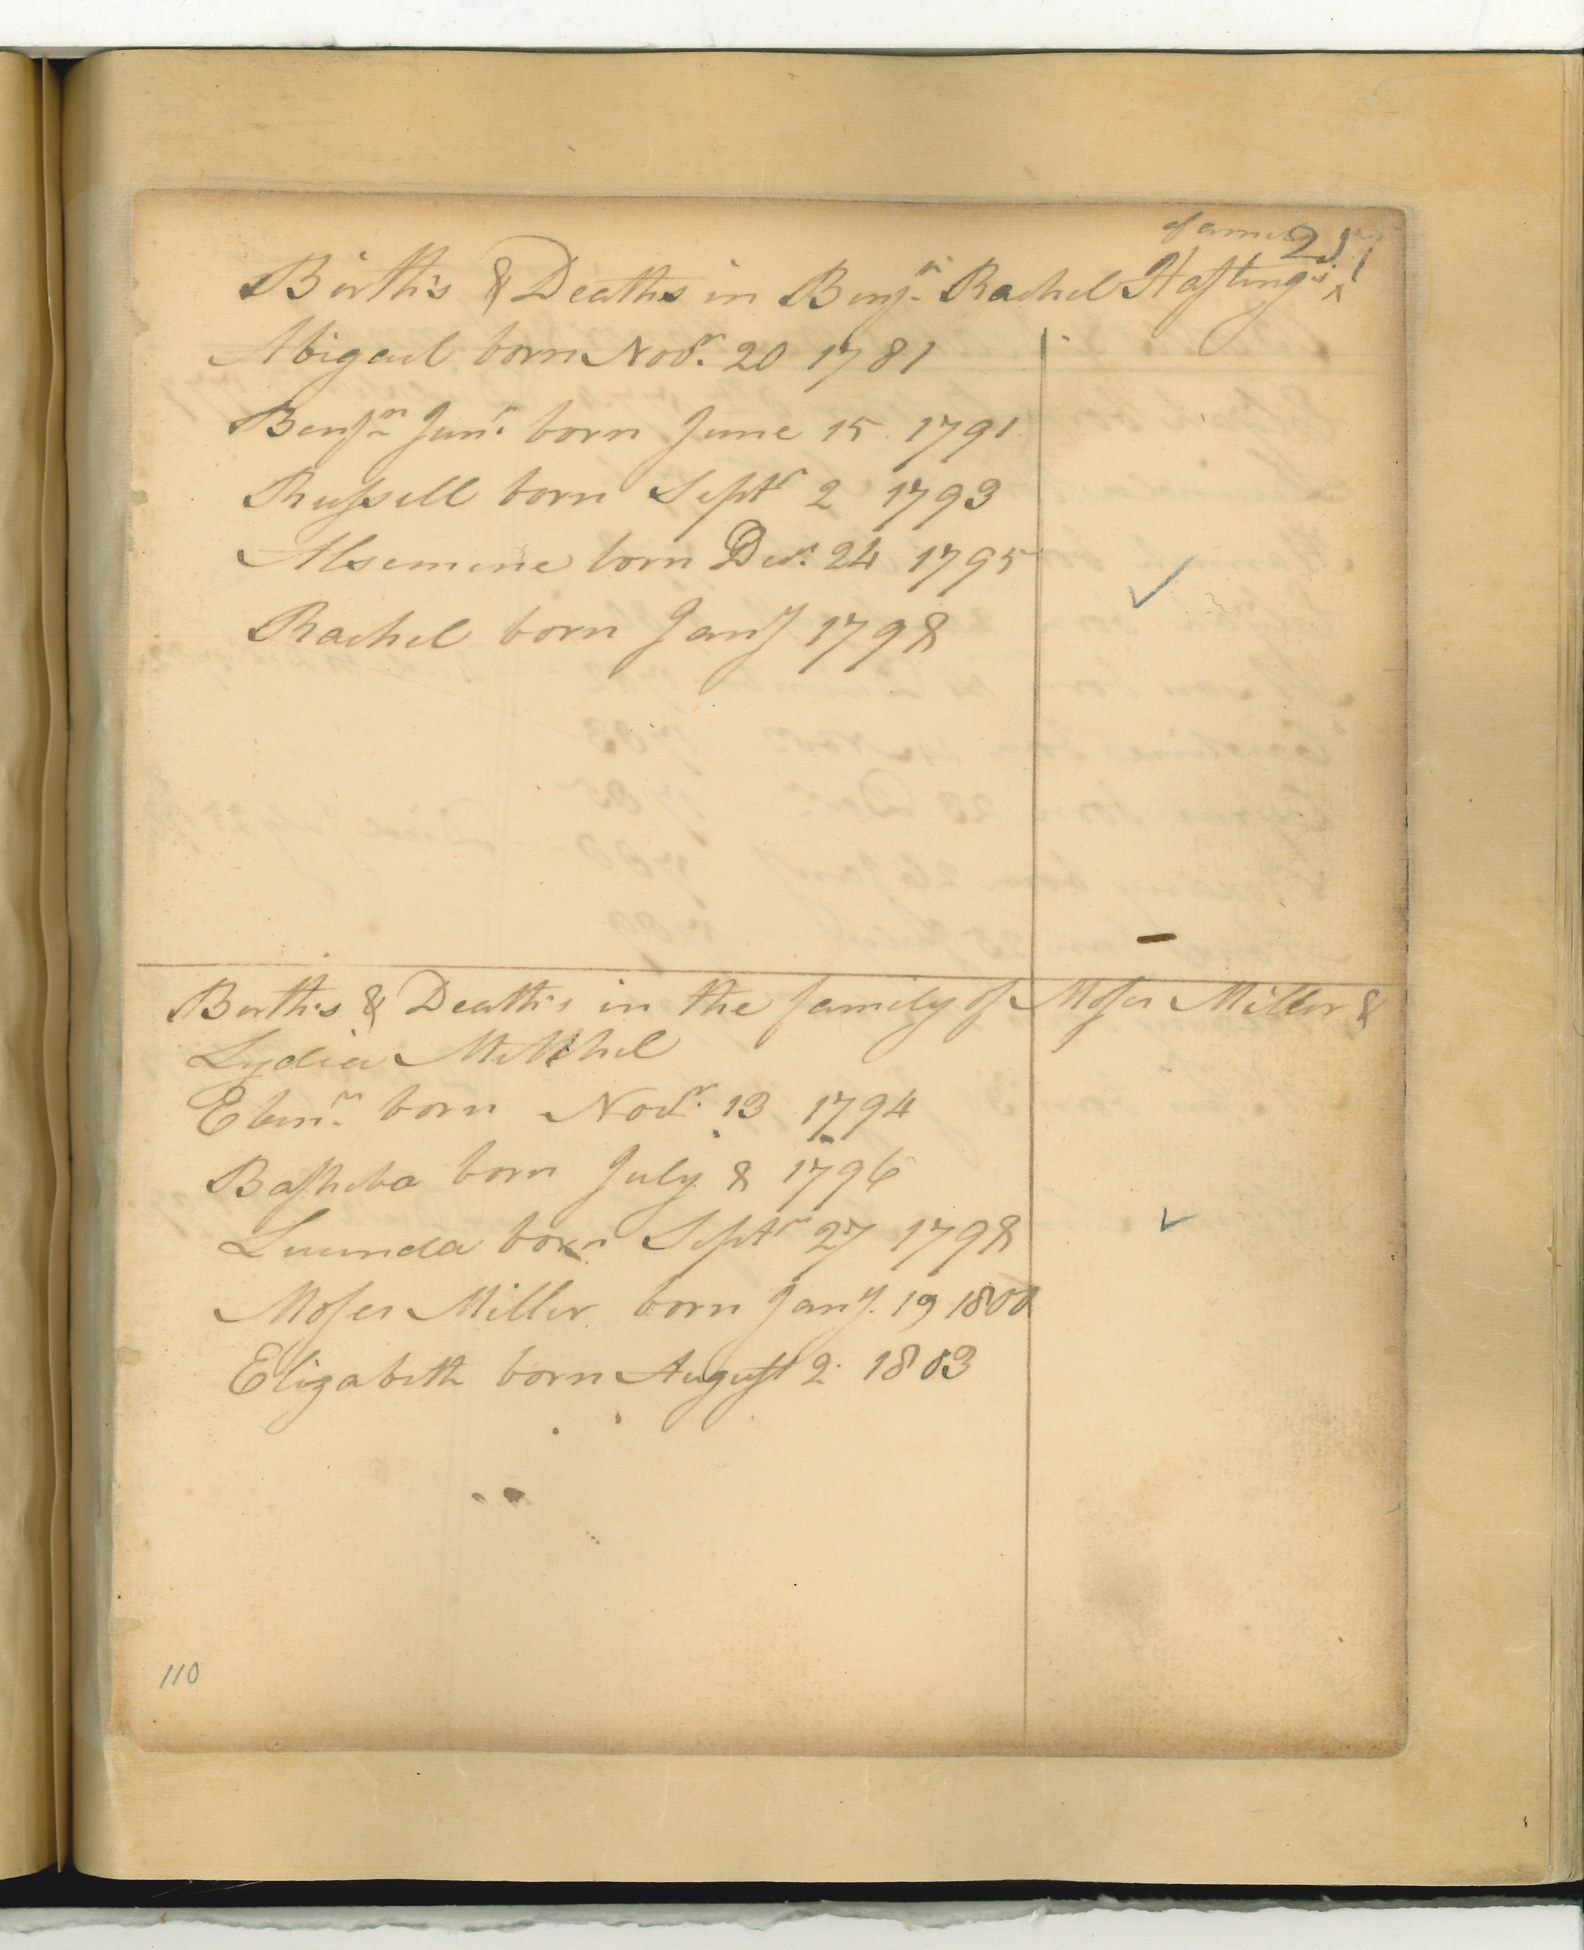 family 217
Births & Deaths in Benjn Rachel Hastings ^
Abigail born Novr. 20 1781
Benjn Junr born June 15 1791
Russell born Septr 2 1793
Alsemene born Decr. 24 1795
Rachel born Jany 1798
Births & Deaths in the family of Moses Miller &
Lydia Mitchel
Ebenr. born Novr. 13 1794
Basheba born July 8 1796
Lucinda born Septr 27 1798
Moses Miller born Jany. 19 1800
Elizabeth born August 2 1803
110